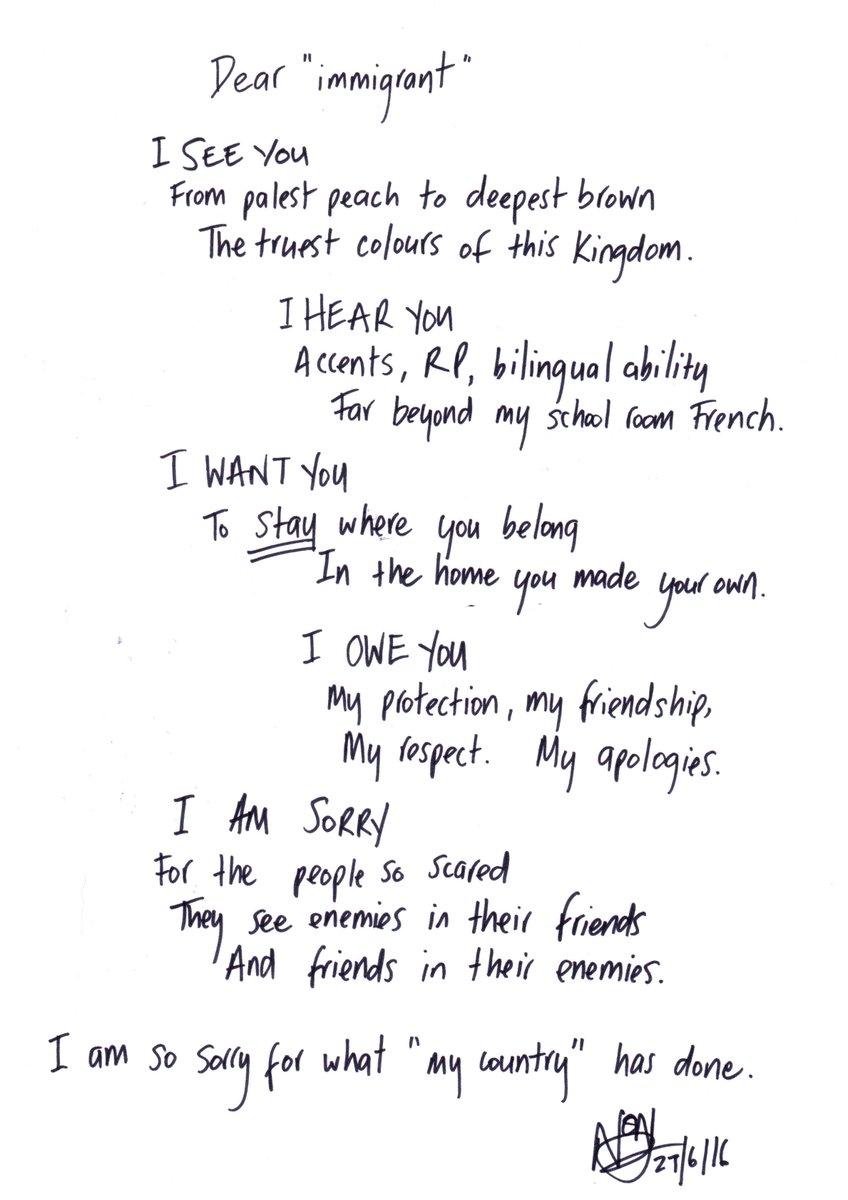 Dear "immigrant"
I SEE YOU
From palest peach to deepest brown
The truest colours of this Kingdom.
I HEAR YOU
Accents, RP, bilingual ability
Far beyond my school room French.
I WANT YOU
To stay where you belong
In the home you made your own.
I OWE YOU
My protection, my friendship,
My respect. My apologies.
I AM SORRY
For the people so scared
They see enemies in their friends
And friends in their enemies.
I am so sorry for what "my country" has done.
27/6/16